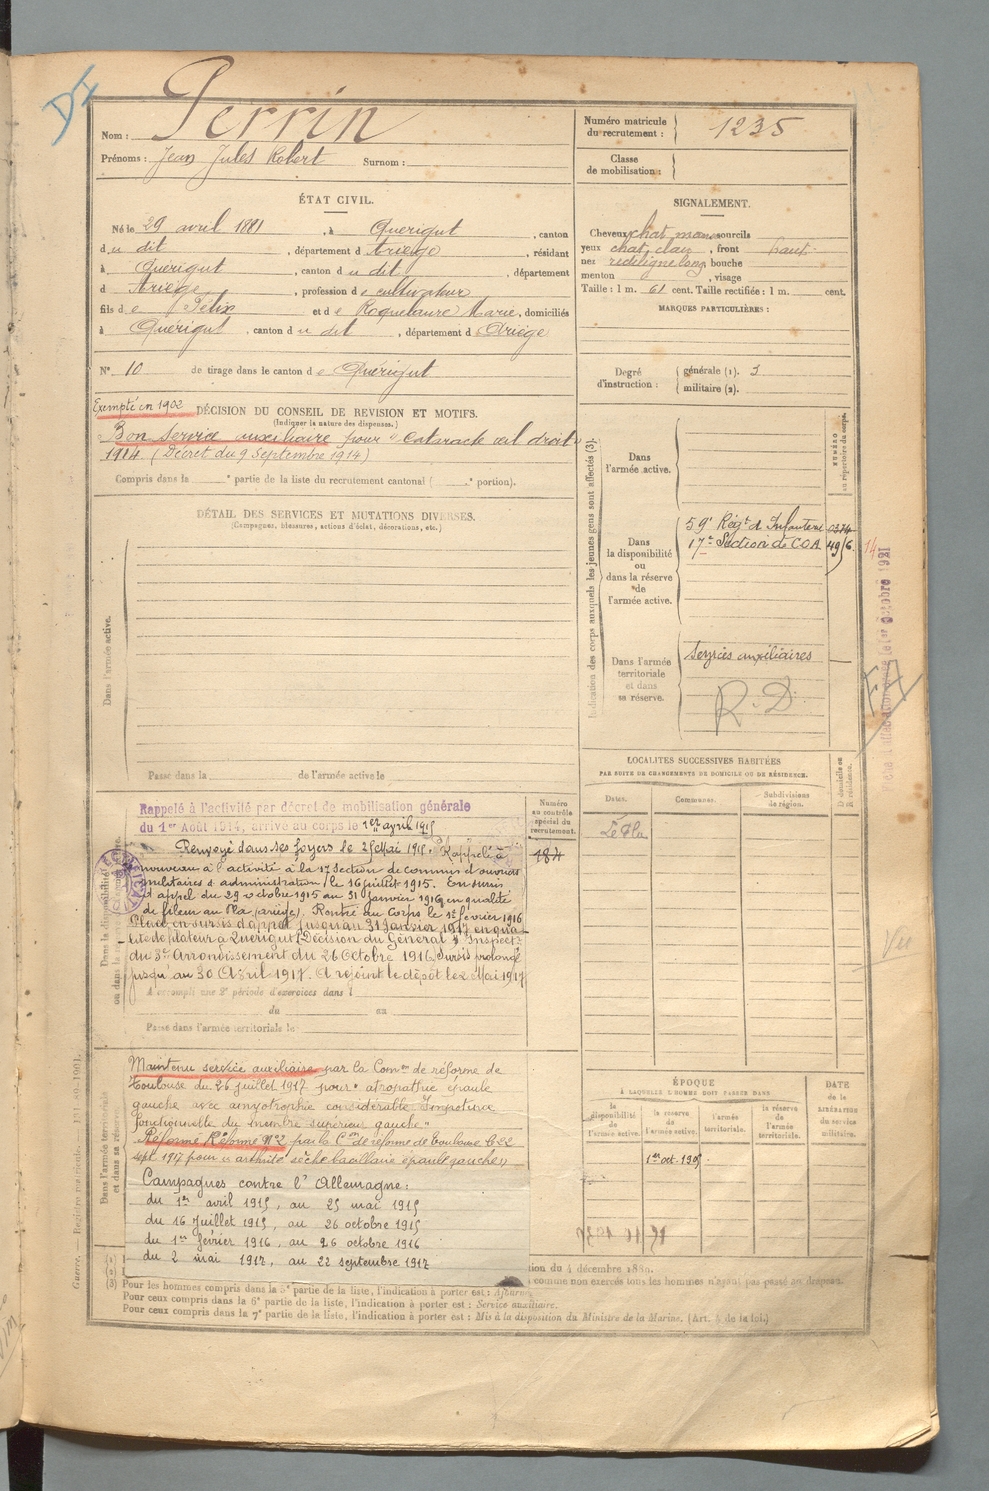 DI
Nom : Perrin
Prénoms : Jean Jules Robert Surnom :
Numéro matricule du recrutement : 1235
Classe de mobilisation :
ÉTAT CIVIL.
Né le 29 avril 1881, à Quérigut, canton
du dit, département d Ariège, résidant
à Quérigut, canton du dit, département
d Ariège, profession de cultivateur
fils de Félix et de Roquelaure Marie, domiciliés
à Quérigut, canton du dit, département d Ariège
N° 10 de tirage dans le canton de Quérigut
SIGNALEMENT.
Cheveux chat. sourcils
yeux chat. clair, front haut
nez rectiligne long bouche
menton , visage
Taille : 1 m. 61 cent. Taille rectifiée : 1 m. cent.
MARQUES PARTICULIÈRES :
Degré d'instruction : générale (1). 3
militaire (2).
Exempté en 1902
DÉCISION DU CONSEIL DE REVISION ET MOTIFS.
(Indiquer la nature des dispenses.)
Bon Service auxiliaire pour "Cataracte œil droit"
1914 (Décret du 9 Septembre 1914)
Compris dans la e partie de la liste du recrutement cantonal ( e portion).
DÉTAIL DES SERVICES ET MUTATIONS DIVERSES.
(Campagnes, blessures, actions d'éclat, décorations, etc.)
Dans l'armée active.
Passé dans la de l'armée active le
Indication des corps auxquels les jeunes gens sont affectés (3).
NUMÉRO au répertoire du corps.
Dans l'armée active.
Dans la disponibilité ou dans la réserve de l'armée active.
59e Régt d'Infanterie
17e Section de COA
Dans l'armée territoriale et dans sa réserve.
Services auxiliaires
R.D.
1er Octobre 1921
LOCALITÉS SUCCESSIVES HABITÉES
PAR SUITE DE CHANGEMENTS DE DOMICILE OU DE RÉSIDENCE.
Dates. Communes. Subdivisions de région. D domicile ou R résidence.
Vu
Numéro au contrôle spécial du recrutement.
184
Rappelé à l'activité par décret de mobilisation générale
du 1er Août 1914, arrivé au corps le 1er avril 1915
Renvoyé dans ses foyers le 25 Mai 1915. Rappelé à
nouveau à l'activité à la 17e Section de commis d'ouvriers
militaires d'administration, le 16 juillet 1915. En sursis
d'appel du 29 octobre 1915 au 31 janvier 1916 en qualité
de fileur au Pla (Ariège). Rentré au Corps le 1er février 1916
Placé en sursis d'appel jusqu'au 31 Janvier 1917 en qua-
lité de filateur à Quérigut (Décision du Général Inspectr
du 3e Arrondissement du 26 Octobre 1916) Sursis prolongé
jusqu'au 30 Avril 1917. A rejoint le dépôt le 2 Mai 1917
A accompli une 2e période d'exercices dans l
du au
Passé dans l'armée territoriale le
Maintenu service auxiliaire par la Comon de réforme de
Toulouse du 26 juillet 1917 pour
gauche avec amyotrophie considérable Impotence
fonctionnelle du membre supérieur gauche"
Réformé N°2 par la Con de réforme de Toulouse le 22
sept. 1917 pour "arthrite sèche bacillaire épaule gauche"
Campagnes contre l'Allemagne :
du 1er avril 1915, au 25 mai 1915
du 16 Juillet 1915, au 26 octobre 1915
du 1er février 1916, au 26 octobre 1916
du 2 mai 1917, au 22 septembre 1917
Dans l'armée territoriale et dans sa réserve.
ÉPOQUE
À LAQUELLE L'HOMME DOIT PASSER DANS
la disponibilité de l'armée active.
la réserve de l'armée active.
l'armée territoriale.
la réserve de l'armée territoriale.
DATE DE LA LIBÉRATION du service militaire.
1er oct. 1905
Guerre. — Registre matricule.
(1)
(2)
(3) Pour les hommes compris dans la 5e partie de la liste, l'indication à porter est :
Pour ceux compris dans la 6e partie de la liste, l'indication à porter est : Service auxiliaire.
Pour ceux compris dans la 7e partie de la liste, l'indication à porter est : Mis à la disposition du Ministre de la Marine. (Art. 4 de la loi.)